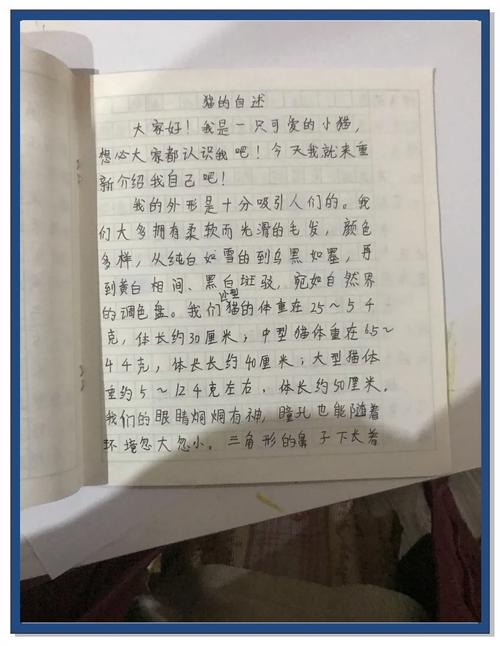 猫的自述
大家好！我是一只可爱的小猫，
想必大家都认识我吧！今天我就来重
新介绍我自己吧！
我的外形是十分吸引人们的。我
们大多拥有柔软而光滑的毛发，颜色
多样，从纯白如雪的到乌黑如墨，再
到黄白相间、黑白斑驳，宛如自然界
的调色盘。我们小型猫的体重在25～5千
克，体长约30厘米；中型猫体重在65～
4千克，体长长约40厘米；大型猫体
重约5～12千克左右，体长约50厘米。
我们的眼睛炯炯有神，瞳孔也能随着
环境忽大忽小。三角形的鼻子下长着